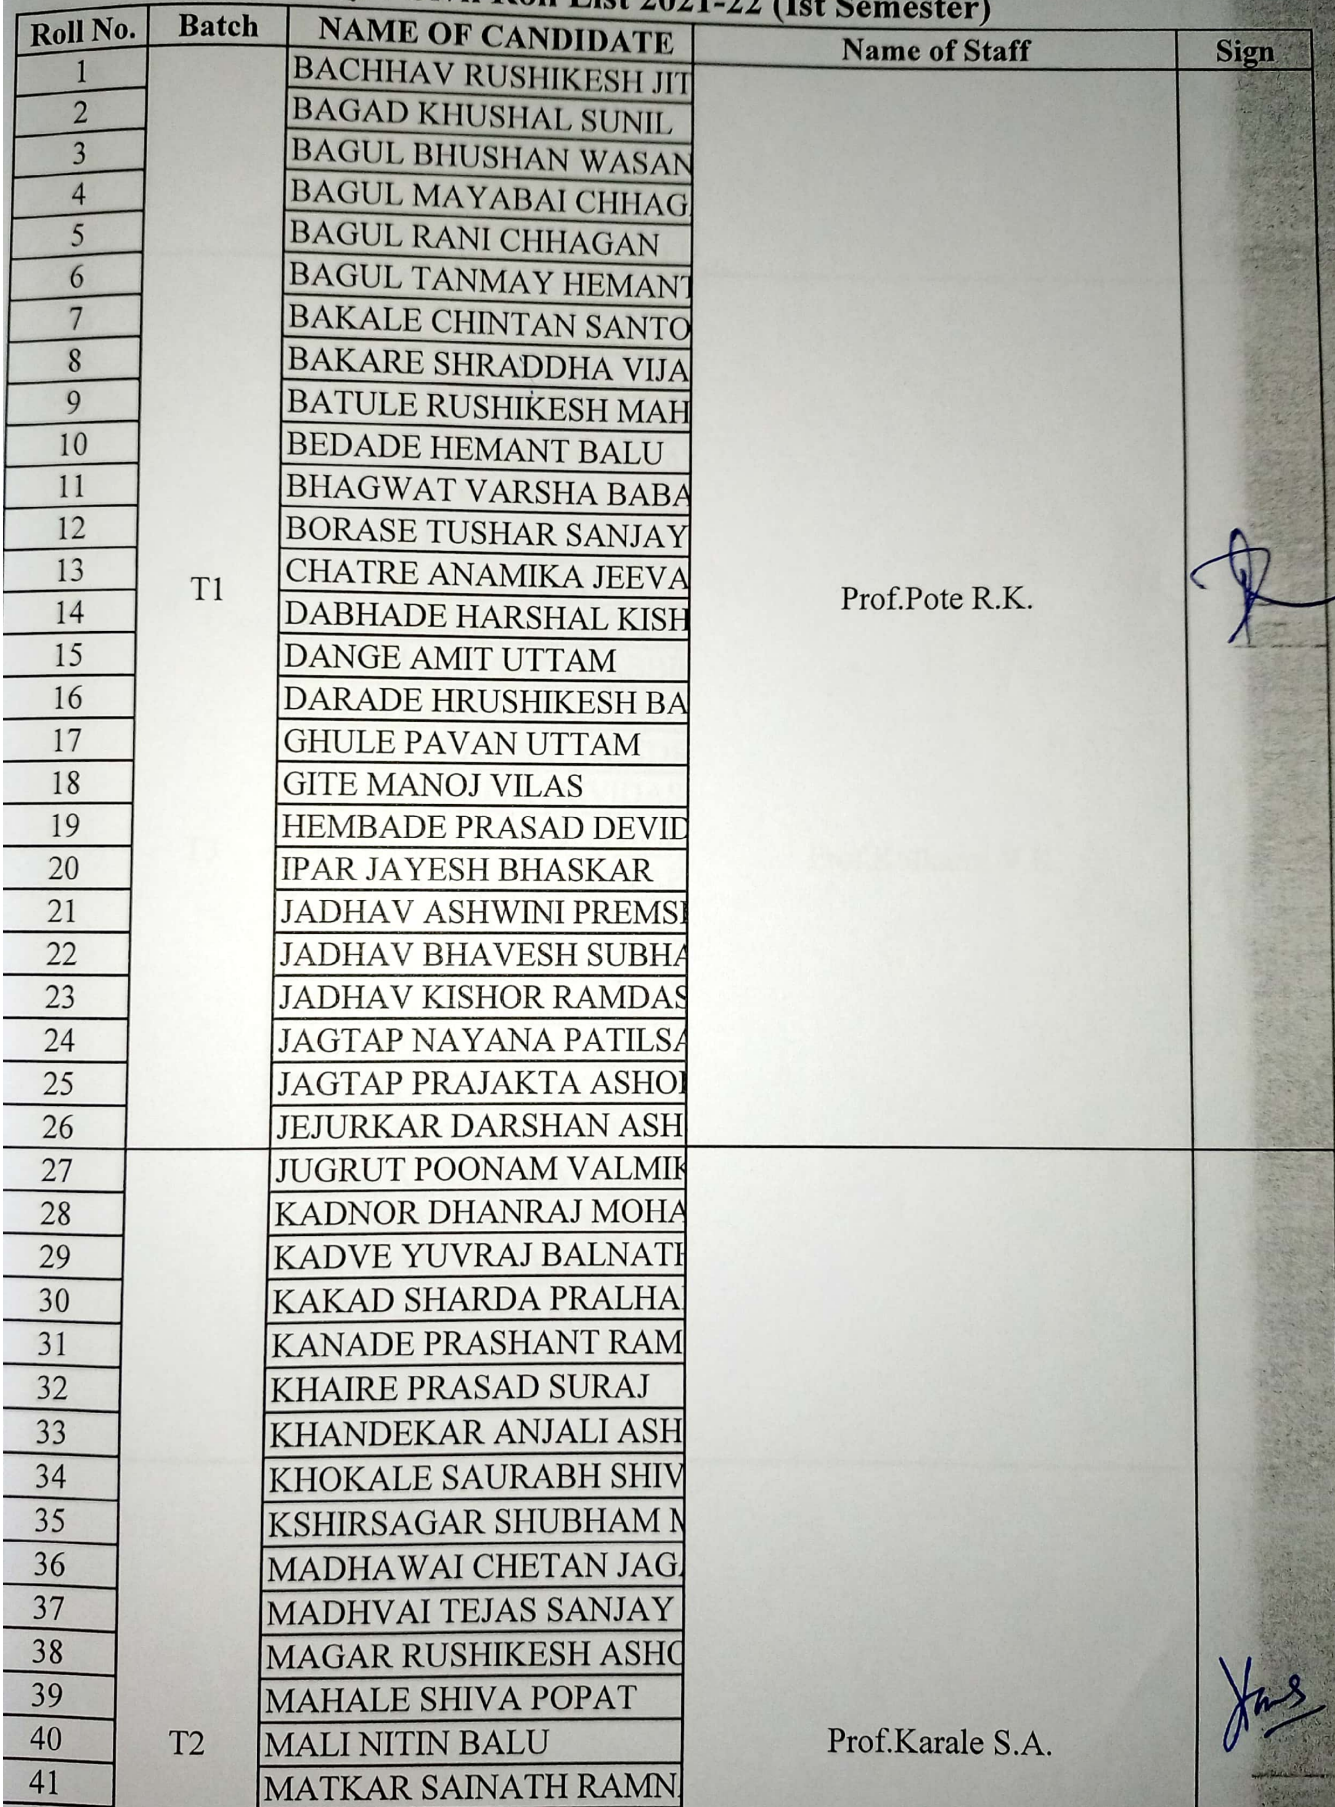 Roll List 2021-22 (Ist Semester)
Roll No. Batch NAME OF CANDIDATE Name of Staff Sign
1 BACHHAV RUSHIKESH JIT
2 BAGAD KHUSHAL SUNIL
3 BAGUL BHUSHAN WASAN
4 BAGUL MAYABAI CHHAG
5 BAGUL RANI CHHAGAN
6 BAGUL TANMAY HEMANT
7 BAKALE CHINTAN SANTO
8 BAKARE SHRADDHA VIJA
9 BATULE RUSHIKESH MAH
10 BEDADE HEMANT BALU
11 BHAGWAT VARSHA BABA
12 BORASE TUSHAR SANJAY
13 CHATRE ANAMIKA JEEVA
T1 Prof.Pote R.K.
14 DABHADE HARSHAL KISH
15 DANGE AMIT UTTAM
16 DARADE HRUSHIKESH BA
17 GHULE PAVAN UTTAM
18 GITE MANOJ VILAS
19 HEMBADE PRASAD DEVID
20 IPAR JAYESH BHASKAR
21 JADHAV ASHWINI PREMS
22 JADHAV BHAVESH SUBHA
23 JADHAV KISHOR RAMDAS
24 JAGTAP NAYANA PATILSA
25 JAGTAP PRAJAKTA ASHO
26 JEJURKAR DARSHAN ASH
27 JUGRUT POONAM VALMIK
28 KADNOR DHANRAJ MOHA
29 KADVE YUVRAJ BALNATH
30 KAKAD SHARDA PRALHA
31 KANADE PRASHANT RAM
32 KHAIRE PRASAD SURAJ
33 KHANDEKAR ANJALI ASH
34 KHOKALE SAURABH SHIV
35 KSHIRSAGAR SHUBHAM M
36 MADHAWAI CHETAN JAG
37 MADHVAI TEJAS SANJAY
38 MAGAR RUSHIKESH ASHO
39 MAHALE SHIVA POPAT
40 T2 MALI NITIN BALU Prof.Karale S.A.
41 MATKAR SAINATH RAMN